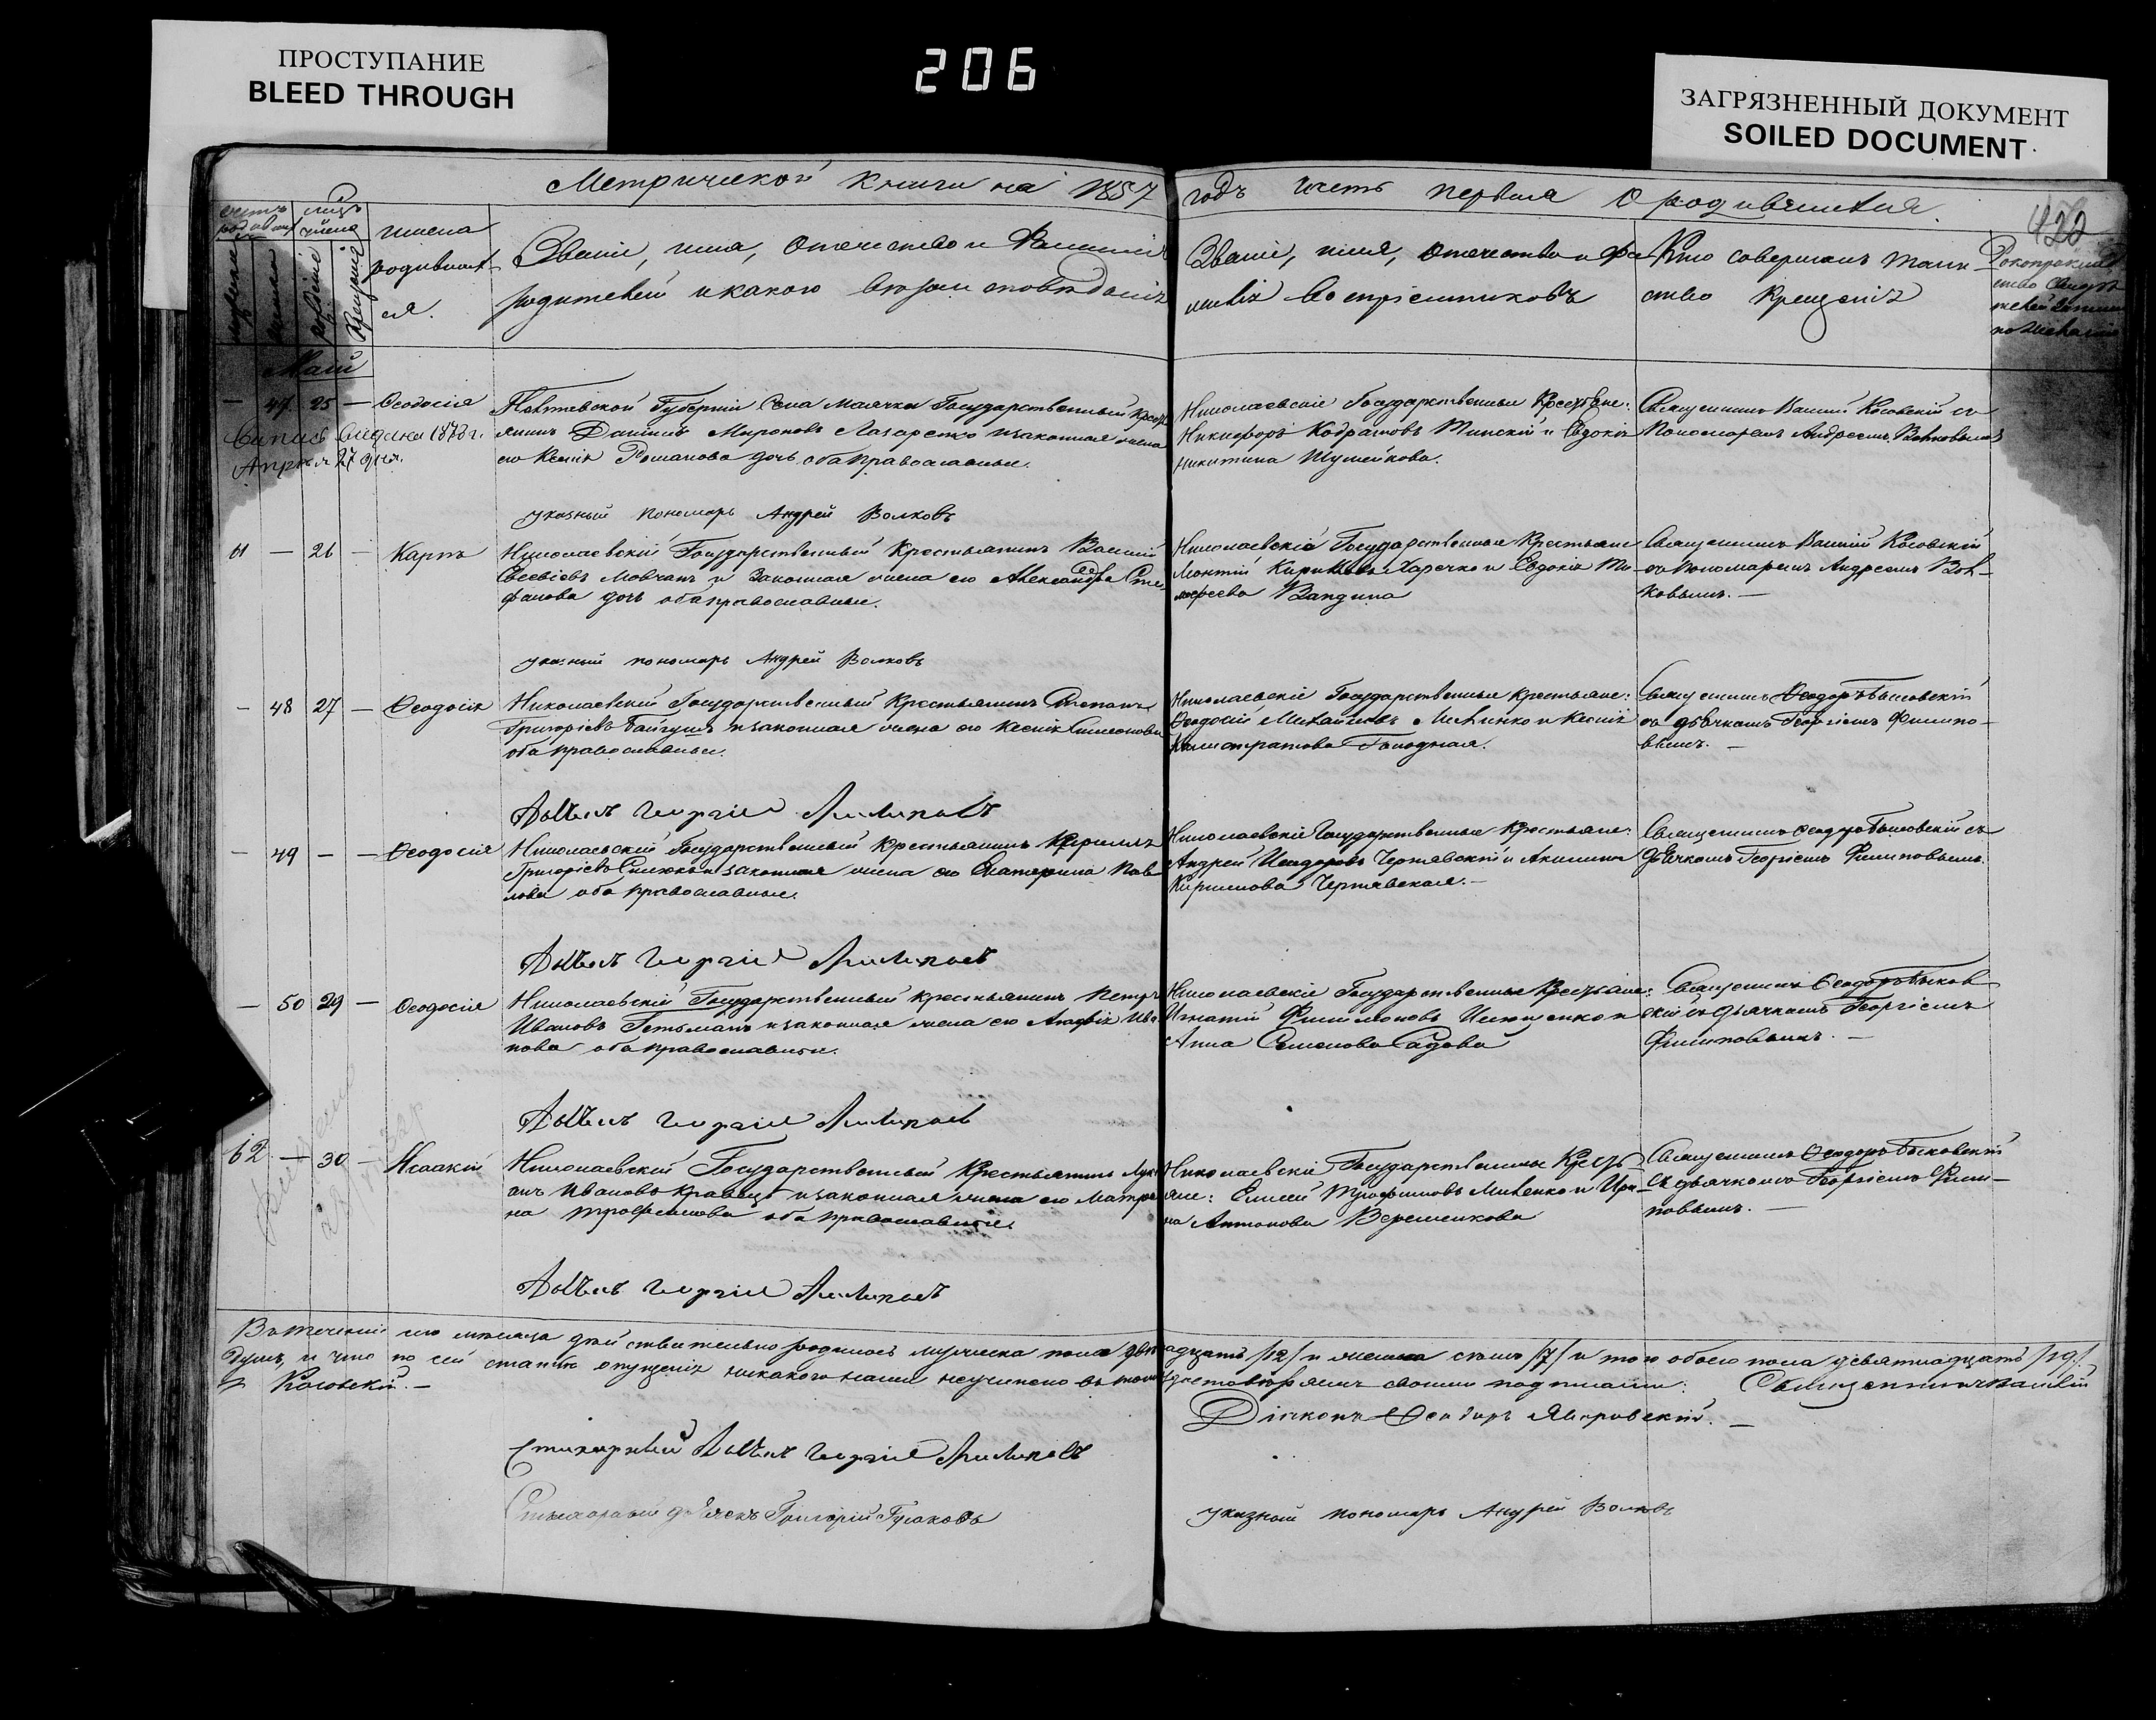 ПРОСТУПАНИЕ
BLEED THROUGH
206
ЗАГРЯЗНЕННЫЙ ДОКУМЕНТ
SOILED DOCUMENT
Метрической книги на 1857
годъ часть первая о родившихся.
422
имена
родивших
ся.
Званіе, имя, отечество и Фамилія
родителей и какого вѣроисповѣданія
Званіе, имя, отечество и Фа
милія воспріемниковъ
Кто совершалъ таин
ство крещенія
Маій
— 47 25 — Ѳеодосія
Апрѣля 27 дня.
Полтавской Губерніи Села Маячки Государственный Кресть
янинъ Даніилъ Мироновъ Лазаренко и законная жена
его Ксенія Романова дочь оба православные.
Николаевскіе Государственные Крестьяне:
Никифоръ Кодратовъ и Евдокія
Никитина Шумейкова.
Священникъ Василій Косовскій съ
Пономаремъ Андреемъ Волковымъ
указный пономарь Андрей Волковъ
61 — 26 — Карпъ
Николаевскій Государственный Крестьянинъ Василій
Евсевіевъ Мовчанъ и Законная жена его Александра Сте
фанова дочь оба православные.
Николаевскіе Государственные Крестьяне
Леонтій Кириловъ Харечко и Евдокія Ти
мофеева
Священникъ Василій Косовскій
съ пономаремъ Андреемъ Вол-
ковымъ. —
указный пономарь Андрей Волковъ
— 48 27 — Ѳеодосія
Николаевскій Государственный Крестьянинъ Степанъ
Григорьевъ Байгушъ и законная жена его Ксенія Симеонова
оба православные.
Николаевскіе Государственные крестьяне:
Ѳеодосій Михайловъ и Ксенія
Калистратова Голодная.
Священникъ Ѳеодоръ Быковскій
съ дьячкомъ Георгіемъ Филипо-
вымъ. —
Дьячекъ Георгій Филиповъ
— 49 — — Ѳеодосія
Николаевскій Государственный Крестьянинъ Кириллъ
Григорьевъ и законная жена его Екатерина Пав
лова оба православные.
Николаевскіе Государственные Крестьяне:
Андрей Исидоровъ Чернявскій и Акилина
Кирилова Чернявская. —
Священникъ Ѳеодоръ Быковскій съ
дьячкомъ Георгіемъ Филиповымъ.
Дьячекъ Георгій Филиповъ
— 50 29 — Ѳеодосія
Николаевскій Государственный Крестьянинъ Петръ
Ивановъ Гетьманъ и законная жена его Агафія Ива
нова оба православные.
Николаевскіе Государственные Крестьяне:
Игнатій Филимоновъ Ищенко и
Анна Семенова Садова
Священникъ Ѳеодоръ Быков
скій съ дьячкомъ Георгіемъ
Филиповымъ. —
Дьячекъ Георгій Филиповъ
62 — 30 — Исаакій
Николаевскій Государственный Крестьянинъ Луки
анъ Ивановъ Кравецъ и законная жена его Матре
на Трофимова оба православные.
Николаевскіе Государственные Кресть
яне: Елисей Трофимовъ и Ири
на Антонова Веремеикова
Священникъ Ѳеодоръ Быковскій
съ дьячкомъ Георгіемъ Фили-
повымъ. —
Дьячекъ Георгій Филиповъ
Въ теченіи сего мѣсяца действительно родилось мужеска пола двѣнадцать /12/ и женска семь /7/ и того обоего пола девятнадцать /19/.
душъ, и что по сей статьѣ опущенія никакого нами неучинено въ томъ удостовѣряемъ своими подписами: Священникъ Василій
Косовскій. —
Діяконъ Ѳеодоръ Яворовскій. —
Стихарный Дьячекъ Георгій Филиповъ
Стихарный дьячекъ Григорій Гусаковъ
указный пономарь Андрей Волковъ